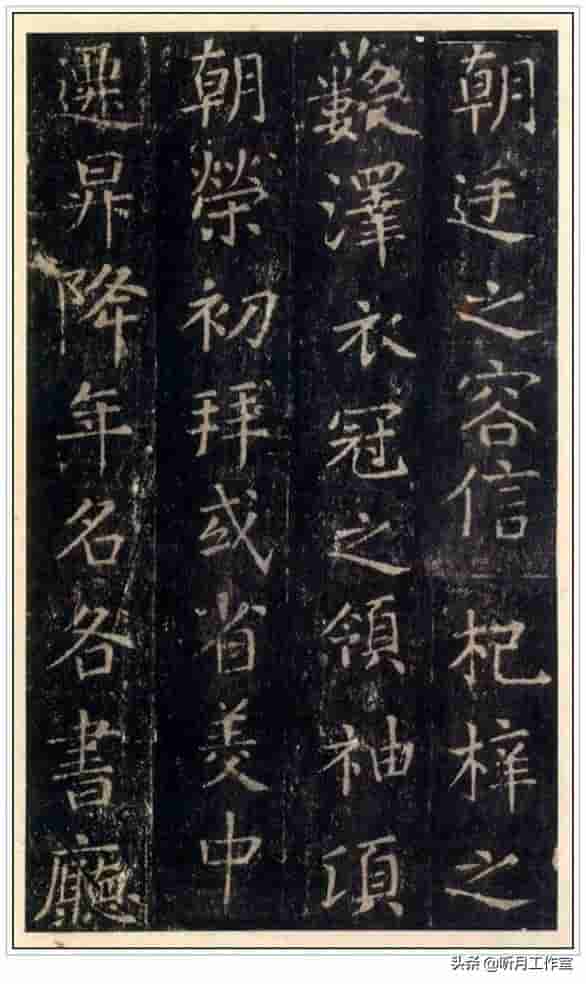 朝廷之容信杞梓之
藪澤衣冠之領袖頃
朝榮初拜或省美中
遷昇降年名各書廳
头条 @听月工作室